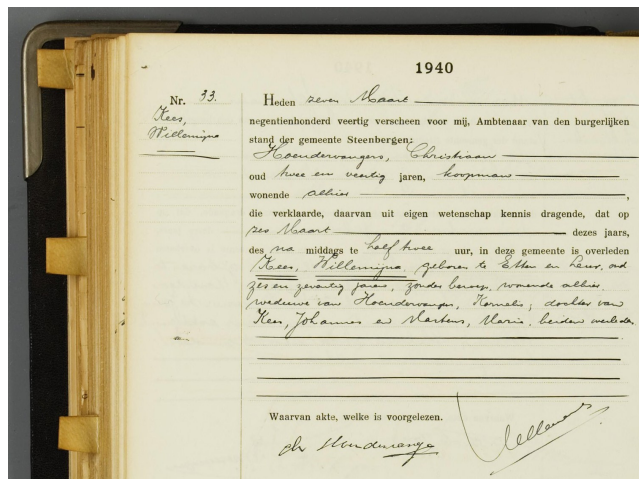 1940
Nr. 33.
Kees,
Willemijna
Heden zeven Maart
negentienhonderd veertig verscheen voor mij, Ambtenaar van den burgerlijken
stand der gemeente Steenbergen:
Hoendervangers, Christiaan
oud twee en veertig jaren, koopman
wonende alhier,
die verklaarde, daarvan uit eigen wetenschap kennis dragende, dat op
zes Maart dezes jaars,
des na middags te half twee uur, in deze gemeente is overleden
Kees, Willemijna, geboren te Etten en Leur, oud
zes en zeventig jaren, zonder beroep, wonende alhier,
weduwe van Hoendervangers, Kornelis; dochter van
Kees, Johannes en Martens, Maria, beiden overleden.
Waarvan akte, welke is voorgelezen.